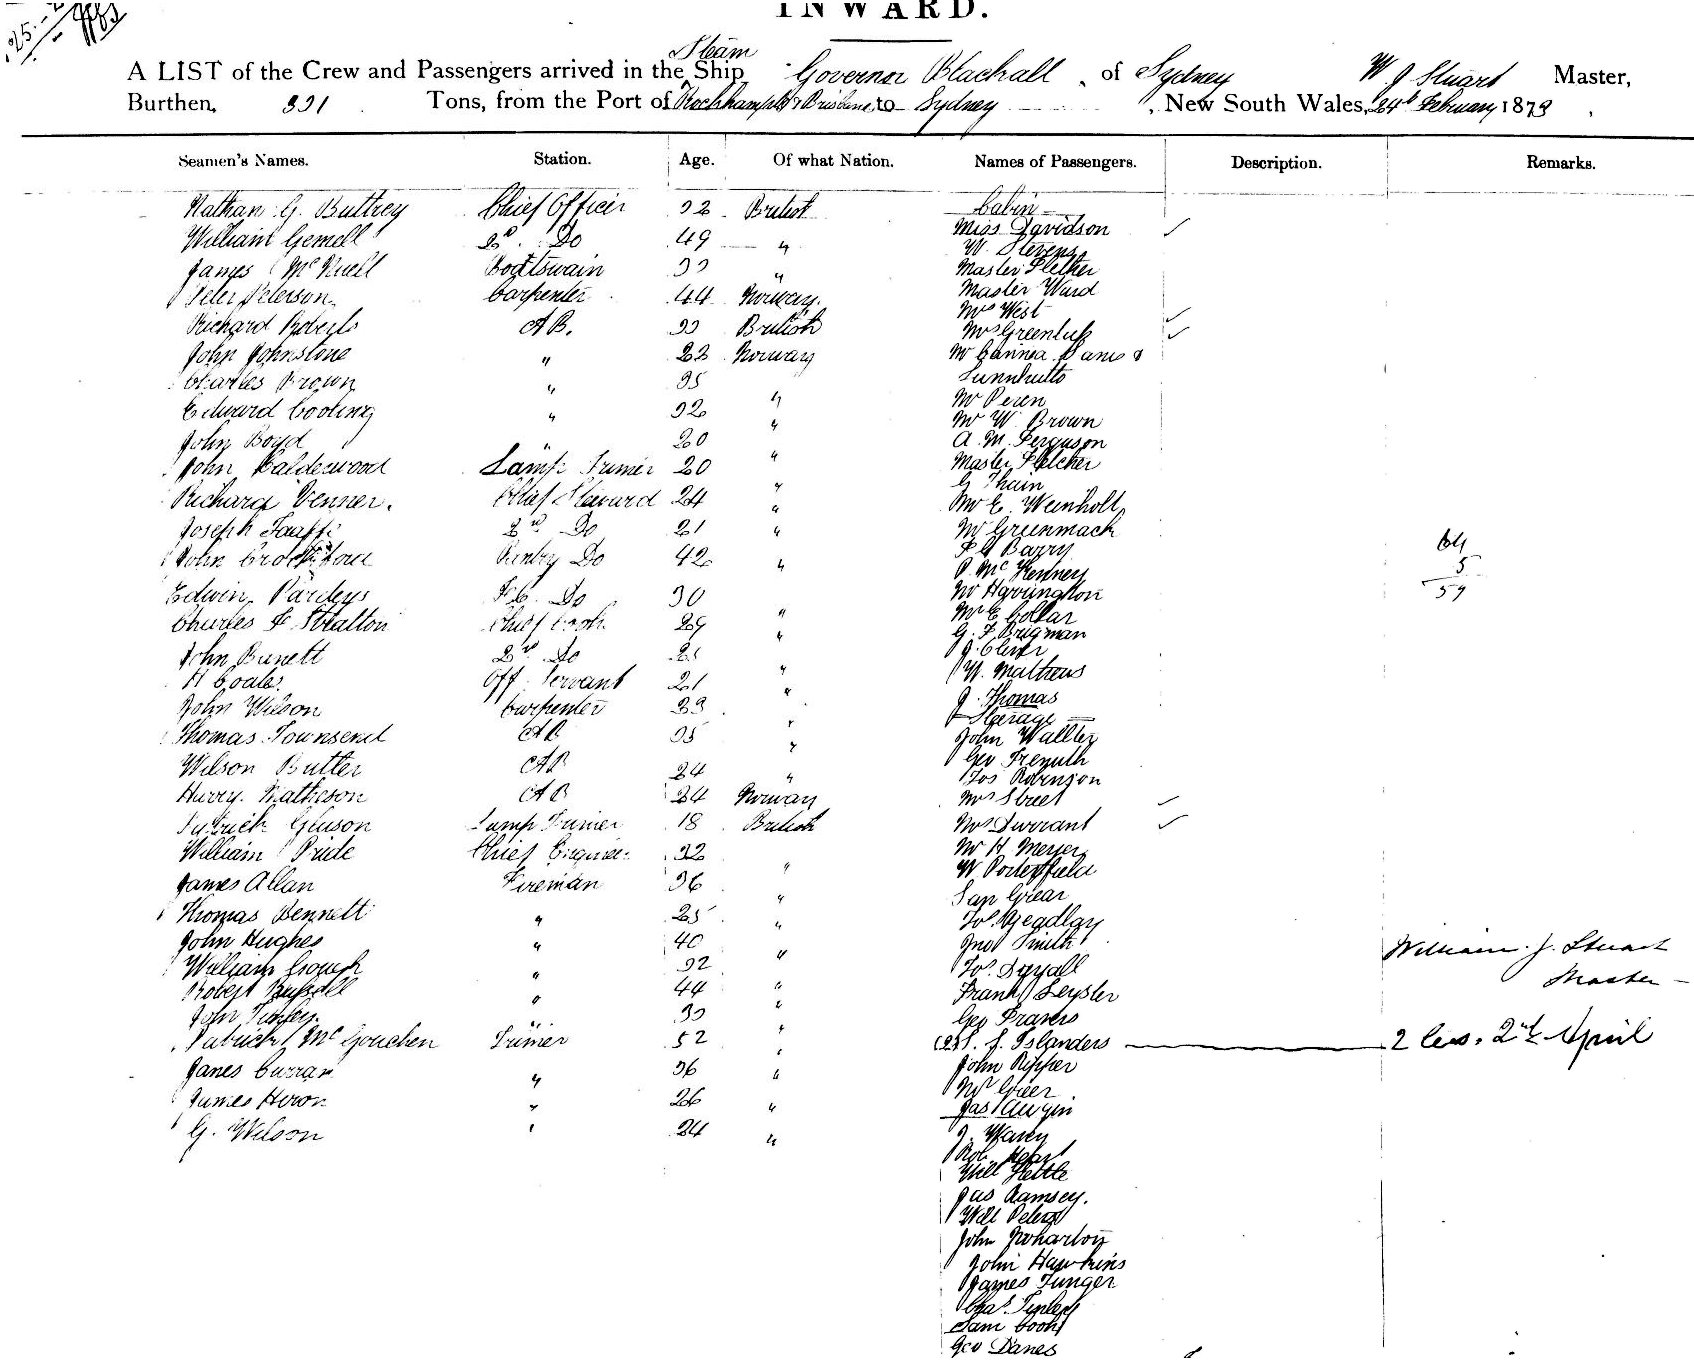 INWARD.
A LIST of the Crew and Passengers arrived in the Steam Ship Governor Blackall of Sydney W J Stuart Master,
Burthen, 391 Tons, from the Port of Rockhampton & Brisbane to Sydney, New South Wales, 24th February 1873
Seamen's Names. Station. Age. Of what Nation. Names of Passengers. Description. Remarks.
Nathan G. Buttrey Chief Officer 32 British Cabin
William Gemell 2nd Do 49 " Miss Davidson
W. Stevens
James McNuell Boatswain 33 " Master Fletcher
Peter Peterson Carpenter 44 Norway. Master Ward
Mrs West
Richard Roberts AB. 33 British Mrs Greenlup
John Johnstone " 22 Norway Mr
Charles Brown " 35 "
Edward Cooling " 32 " Mr Peren
Mr W. Brown
John Boyd " 20 " A. M. Ferguson
John Calderwood Lamp Trimer 20 " Master Fletcher
G Thain
Richard Venner. Chief Steward 24 " Mr E. Weinholt
Joseph 2nd Do 21 " Mr Greenmach
F G Barry
John Do 42 " P. McKenney
Mr Harrington
Edwin Pardeys Do 30 " Mr E Collar
Charles F Stratton Chief Cook 29 " G. F. Brigman
John Bunett 2nd Do 21 " J. Clever
W. Mathews
H Coales Off. Servant 21 " J. Thomas
John Wilson Carpenter 23 " Steerage
Thomas Townsend AB 35 " John Wallter
Wilson Butler AB 24 " Geo Trenuth
Jos Robinson
Harry Matheson AB 24 Norway Mrs Street
Patrick Gluson Lamp Trimer 18 British Mrs Durrant
William Pride Chief Engineer 32 " Mr H. Meyer
W Porterfield
James Allan Fireman 36 " Grear
Thomas Bennett " 25 " Jos. Yeadlay
John Hughes " 40 " Jno Smith
William Gough " 32 " Jos. Dyyall
Robert Russell " 44 " Frank Leyster
John " 30 " Geo Travers
Patrick McGouchen Trimer 52 " (23) S. S. Islanders
James Curran " 36 " John Ripper
Mr Greer
James Heron " 26 " Jas
G. Wilson " 24 " J. Warey
Rob.
Will Kettle
Jas Ramsey.
Will Peters
John Wharton
John Hawkins
James Tunger
Chas. Tinley
Sam Cook
Geo Danes
64
5
59
William. J. Stuart
Master
2 less. 2nd April